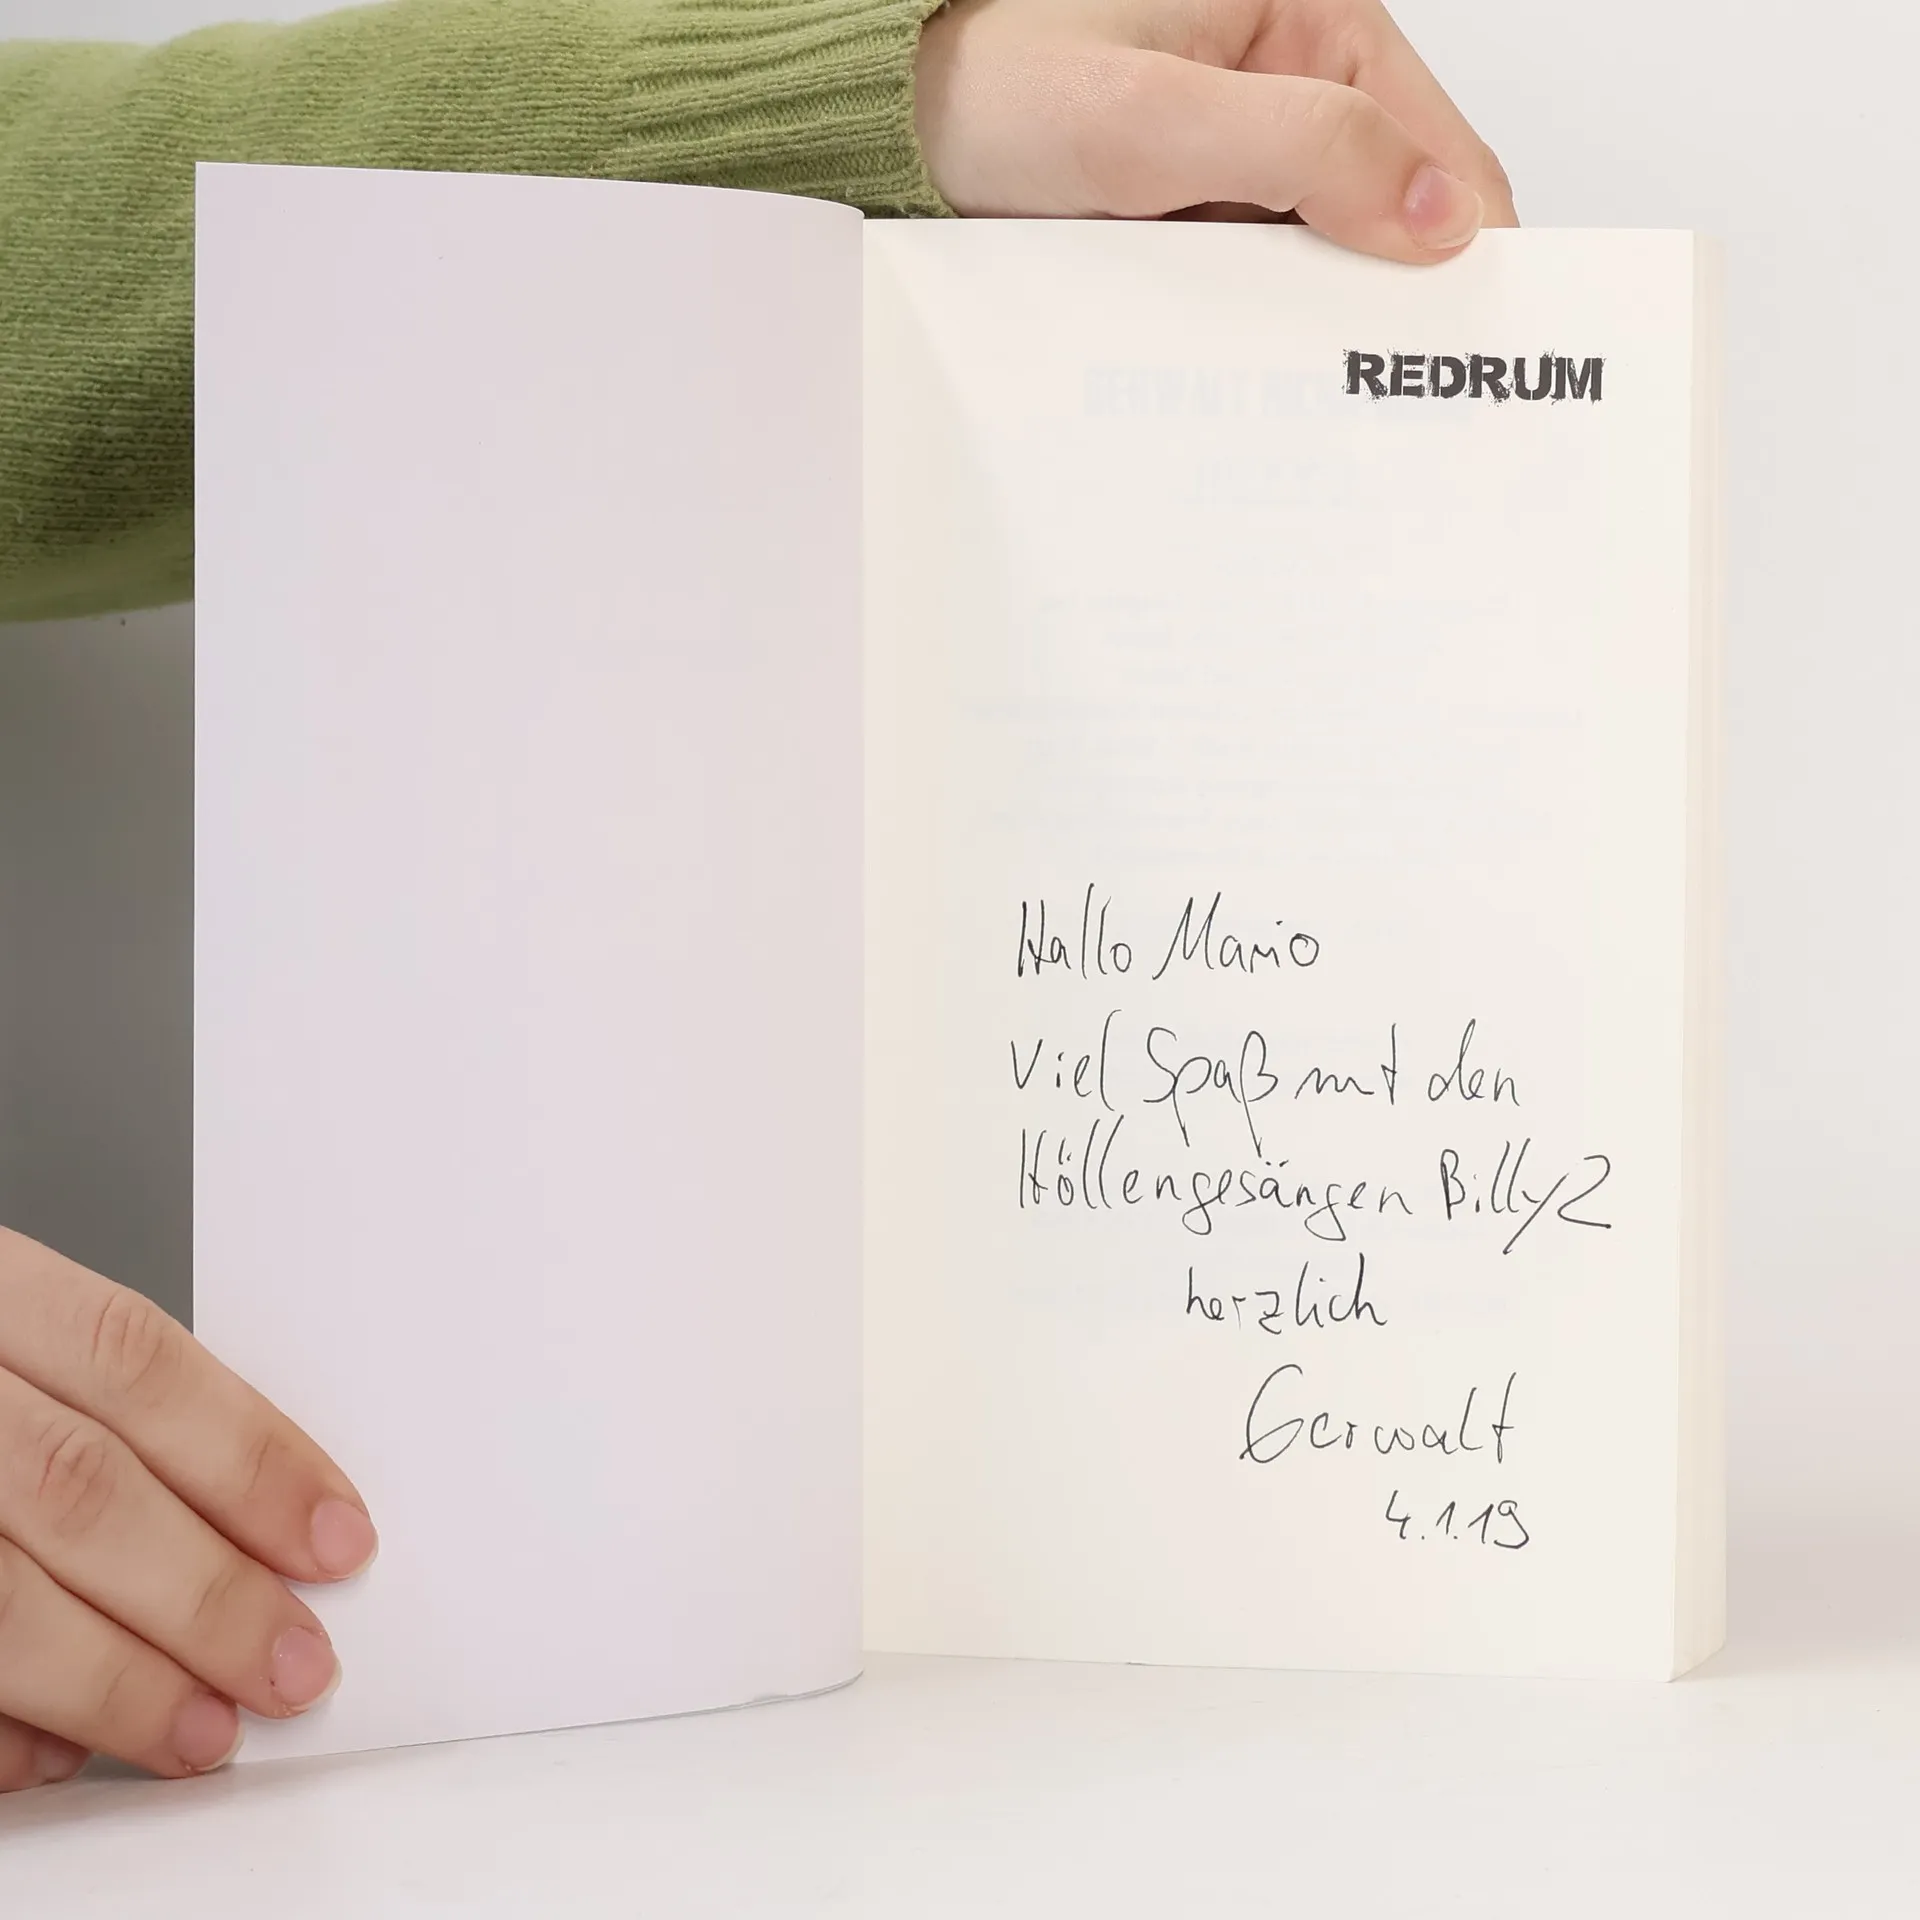 REDRUM
Hallo Mario
viel Spaß mit den
Höllengesängen Billy 2
herzlich
Gerwalt
4.1.19